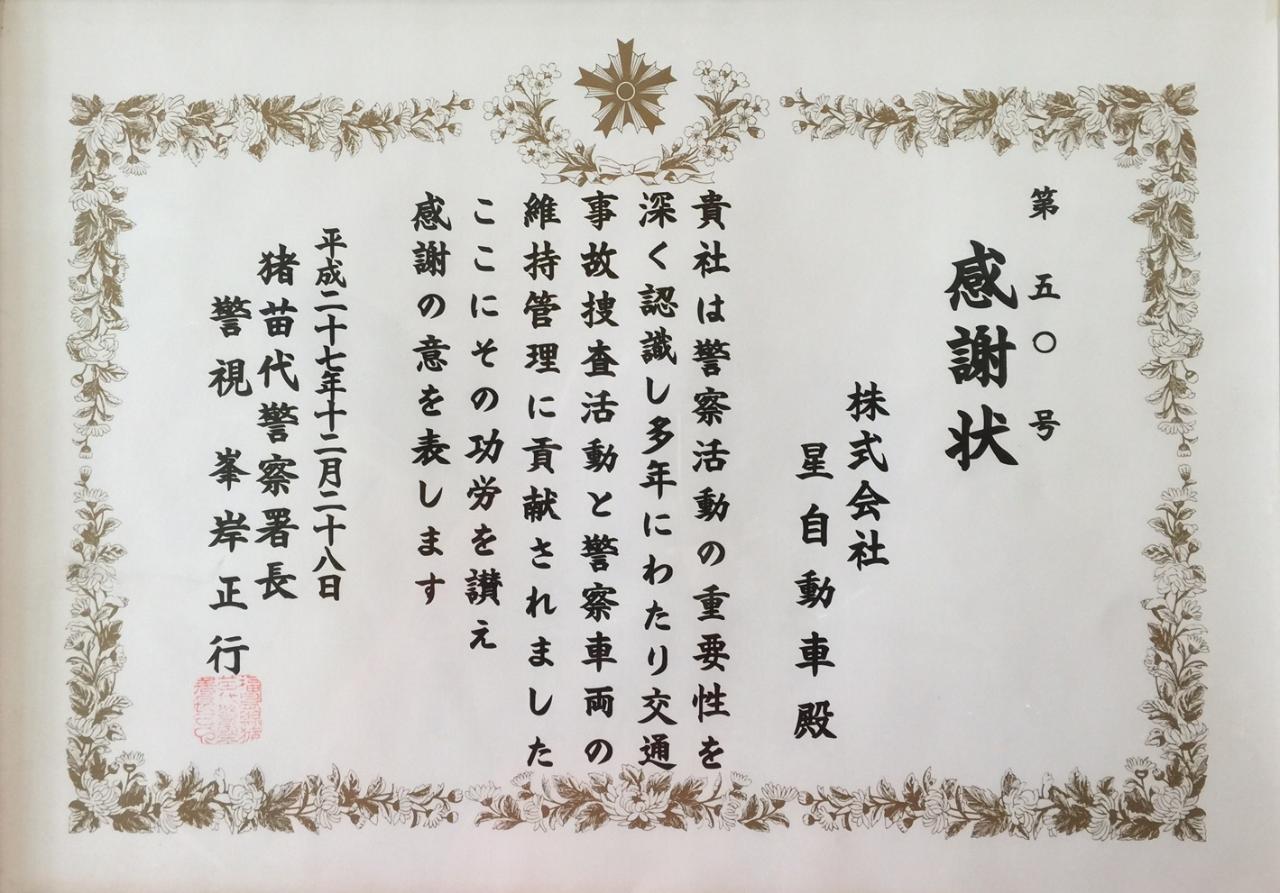 第五〇号
感謝状
株式会社
星自動車殿
貴社は警察活動の重要性を
深く認識し多年にわたり交通
事故捜査活動と警察車両の
維持管理に貢献されました
ここにその功労を讃え
感謝の意を表します
平成二十七年十二月二十八日
猪苗代警察署長
警視 峯岸正行